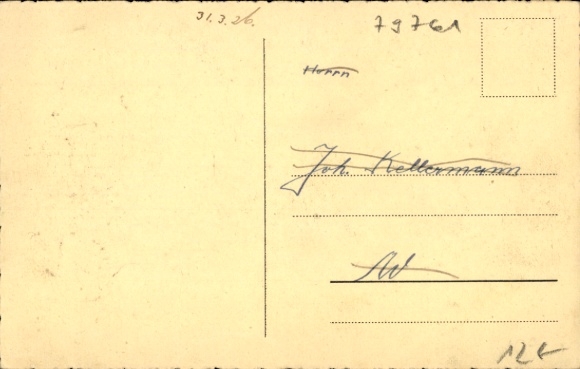 31.3.26.
79761
Herrn
Joh. Kellermann
W
12€